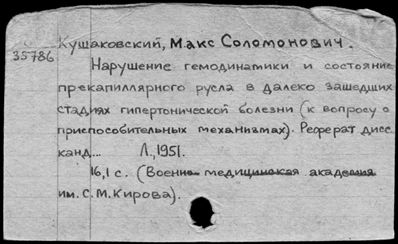 35786
Кушаковский, Макс Соломонович.
Нарушение гемодинамики и состояние
прекапиллярного русла в далеко зашедших
стадиях гипертонической болезни (к вопросу о
приспособительных механизмах). Реферат дисс.
канд... Л., 1951.
16,1 с. (Военно-медицинская академия
им. С. М. Кирова).